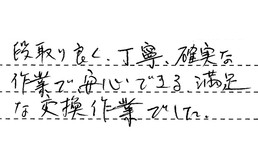 段取り良く、丁寧、確実な
作業で安心できる、満足
な交換作業でした。